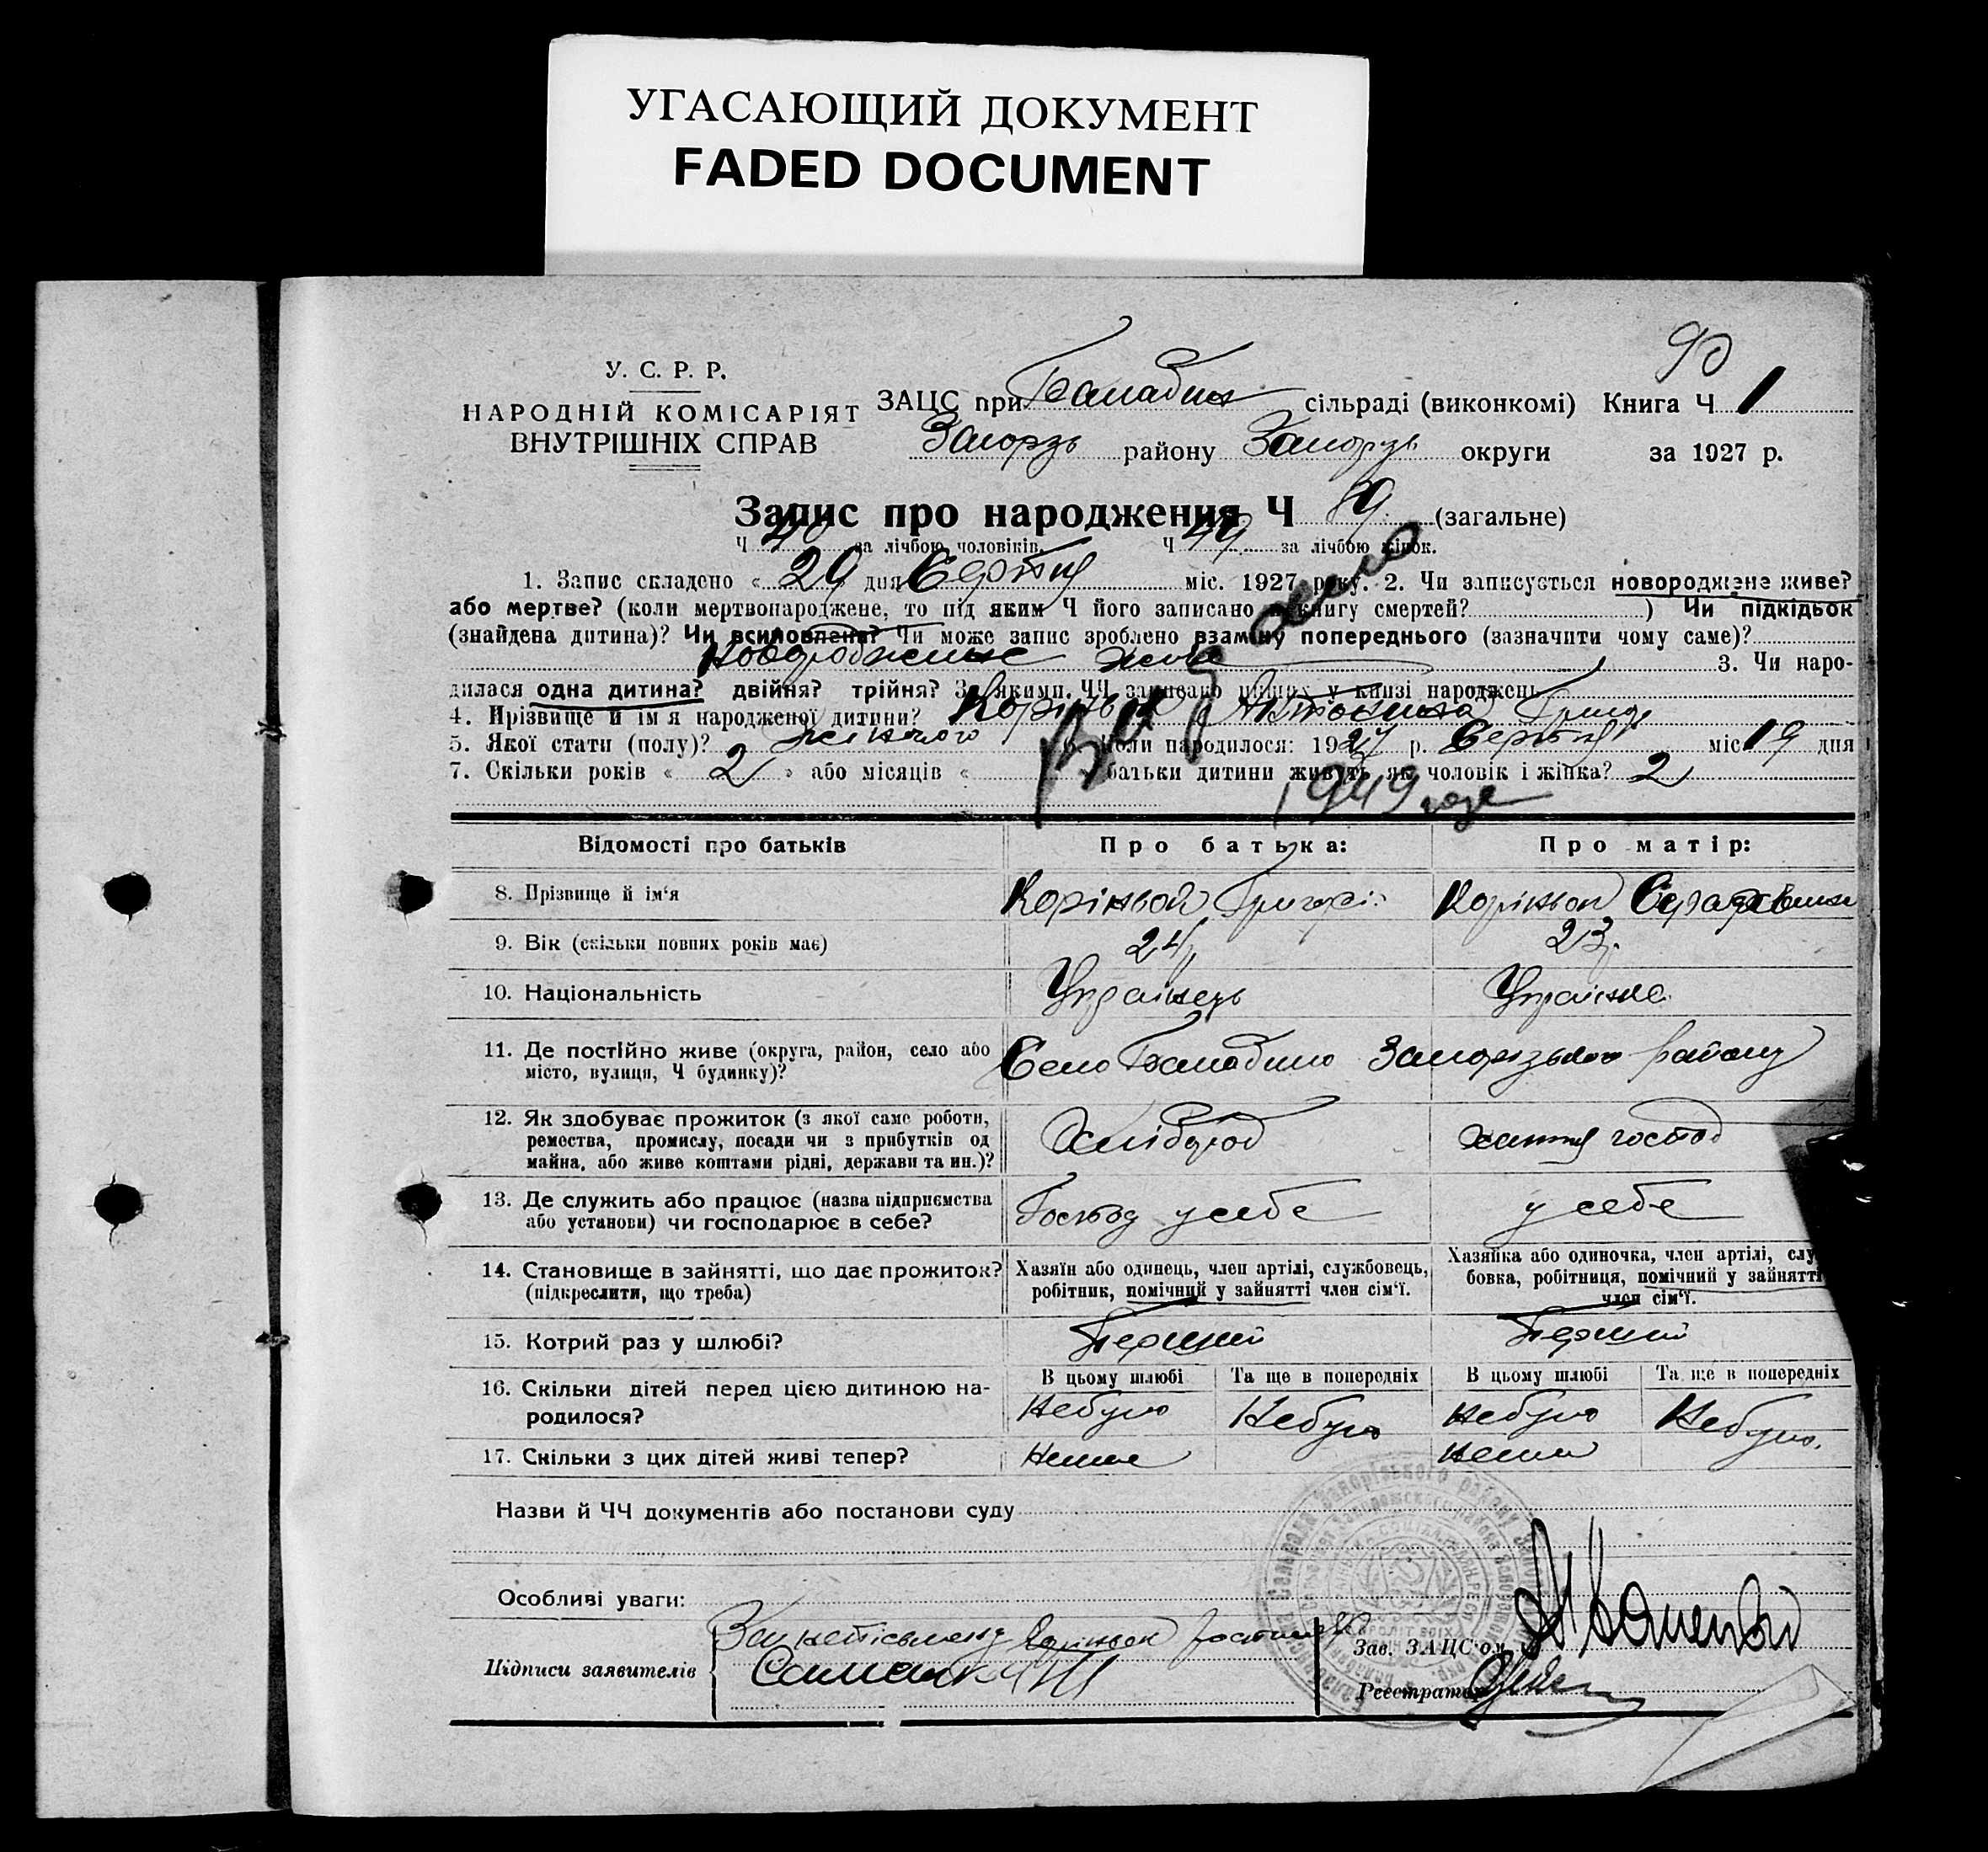 УГАСАЮЩИЙ ДОКУМЕНТ
FADED DOCUMENT
90
У. С. Р. Р.
НАРОДНІЙ КОМІСАРІЯТ
ВНУТРІШНІХ СПРАВ
ЗАЦС при Балабин сільраді (виконкомі) Книга Ч 1
Запорзь району Запорзь округи за 1927 р.
Запис про народження Ч 89. (загальне)
Ч 40 за лічбою чоловіків. Ч 49 за лічбою жінок.
1. Запис складено « 29 » дня Серпня міс. 1927 року. 2. Чи записується новороджене живе?
або мертве? (коли мертвонароджене, то під яким Ч його записано в книгу смертей? ) Чи підкідьок
(знайдена дитина)? Чи всиновлена? Чи може запис зроблено взамну попереднього (зазначити чому саме)?
живе 3. Чи наро-
дилася одна дитина? двійня? трійня? З якими ЧЧ записано инших у книзі народжень
4. Прізвище й ім'я народженої дитини? Коріньок
5. Якої стати (полу)? жіночого 6. Коли народилося: 1927 р. Серпня міс 19 дня
7. Скільки років « 2 » або місяців « » батьки дитини живуть як чоловік і жінка? 2
1949 годе
Відомості про батьків Про батька: Про матір:
8. Прізвище й ім'я Коріньой Григорі Коріньок
9. Вік (скільки повних років має) 24 23
10. Національність Українець Українка
11. Де постійно живе (округа, район, село або місто, вулиця, Ч будинку)? Село Балабино Запорзького району
12. Як здобуває прожиток (з якої саме роботи,
ремества, промислу, посади чи з прибутків од
майна, або живе коштами рідні, держави та ин.)? Хлібороб хатня господ
13. Де служить або працює (назва підприємства
або установи) чи господарює в себе? Господ у себе у себе
14. Становище в зайнятті, що дає прожиток?
(підкреслити, що треба)
Хазяїн або одинець, член артілі, службовець,
робітник, помічний у зайнятті член сім'ї.
Хазяйка або одиночка, член артілі, слу
бовка, робітниця, помічний у зайнятті
член сім'ї.
15. Котрий раз у шлюбі? Перший Перший
В цьому шлюбі Та ще в попередніх В цьому шлюбі Та ще в попередніх
16. Скільки дітей перед цією дитиною на-
родилося? Небуло Небуло Небуло Небуло.
17. Скільки з цих дітей живі тепер? Нема Нема
Назви й ЧЧ документів або постанови суду
Особливі уваги:
Підписи заявителів
Зав. ЗАЦС'ом
Реєстратор